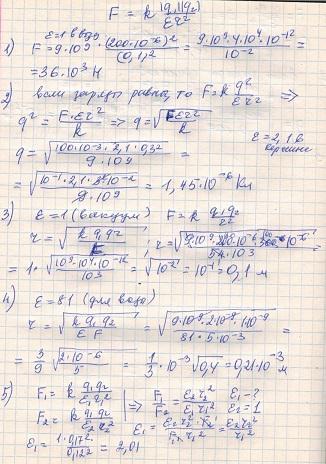 F = k |q₁||q₂| / εr²
1) ε=1 в возд
F = 9·10⁹ · (200·10⁻⁶)² / (0,1)² = 9·10⁹·4·10⁴·10⁻¹² / 10⁻² =
= 36·10³ Н
2) если заряды равны, то F = k q² / εr² ⇒
q² = F·εr² / k ⇒ q = √(Fεr² / k)
ε = 2,1 б керосине
q = √(100·10⁻³·2,1·0,3² / 9·10⁹) =
= √(10⁻¹·2,1·9·10⁻² / 9·10⁹) = 1,45·10⁻⁶ Кл
3) ε=1 (вакуум) F = k q₁q₂ / r²
r = √(k q₁q₂ / F) ; r =
= 1·√(10⁹·10⁴·10⁻¹² / 10³) = √10⁻² = 10⁻¹ = 0,1 м
4) ε = 81 (для воды)
r = √(k q₁q₂ / εF) = √(9·10⁹·2·10⁻⁹·10⁻⁹ / 81·5·10⁻³) =
= 3/9 √(2·10⁻⁶ / 5) = 1/3 ·10⁻³ √0,4 = 0,21·10⁻³ м
5) F₁ = k q₁q₂ / ε₁r₁²
F₂ = k q₁q₂ / ε₂r₂²
⇒ F₁/F₂ = ε₂r₂² / ε₁r₁² ε₁ - ?
ε₂ = 1
ε₁ = ε₂r₂²·F₂ / F₁·r₁² = ε₂r₂² / r₁²
ε₁ = 1·0,17² / 0,12² = 2,01